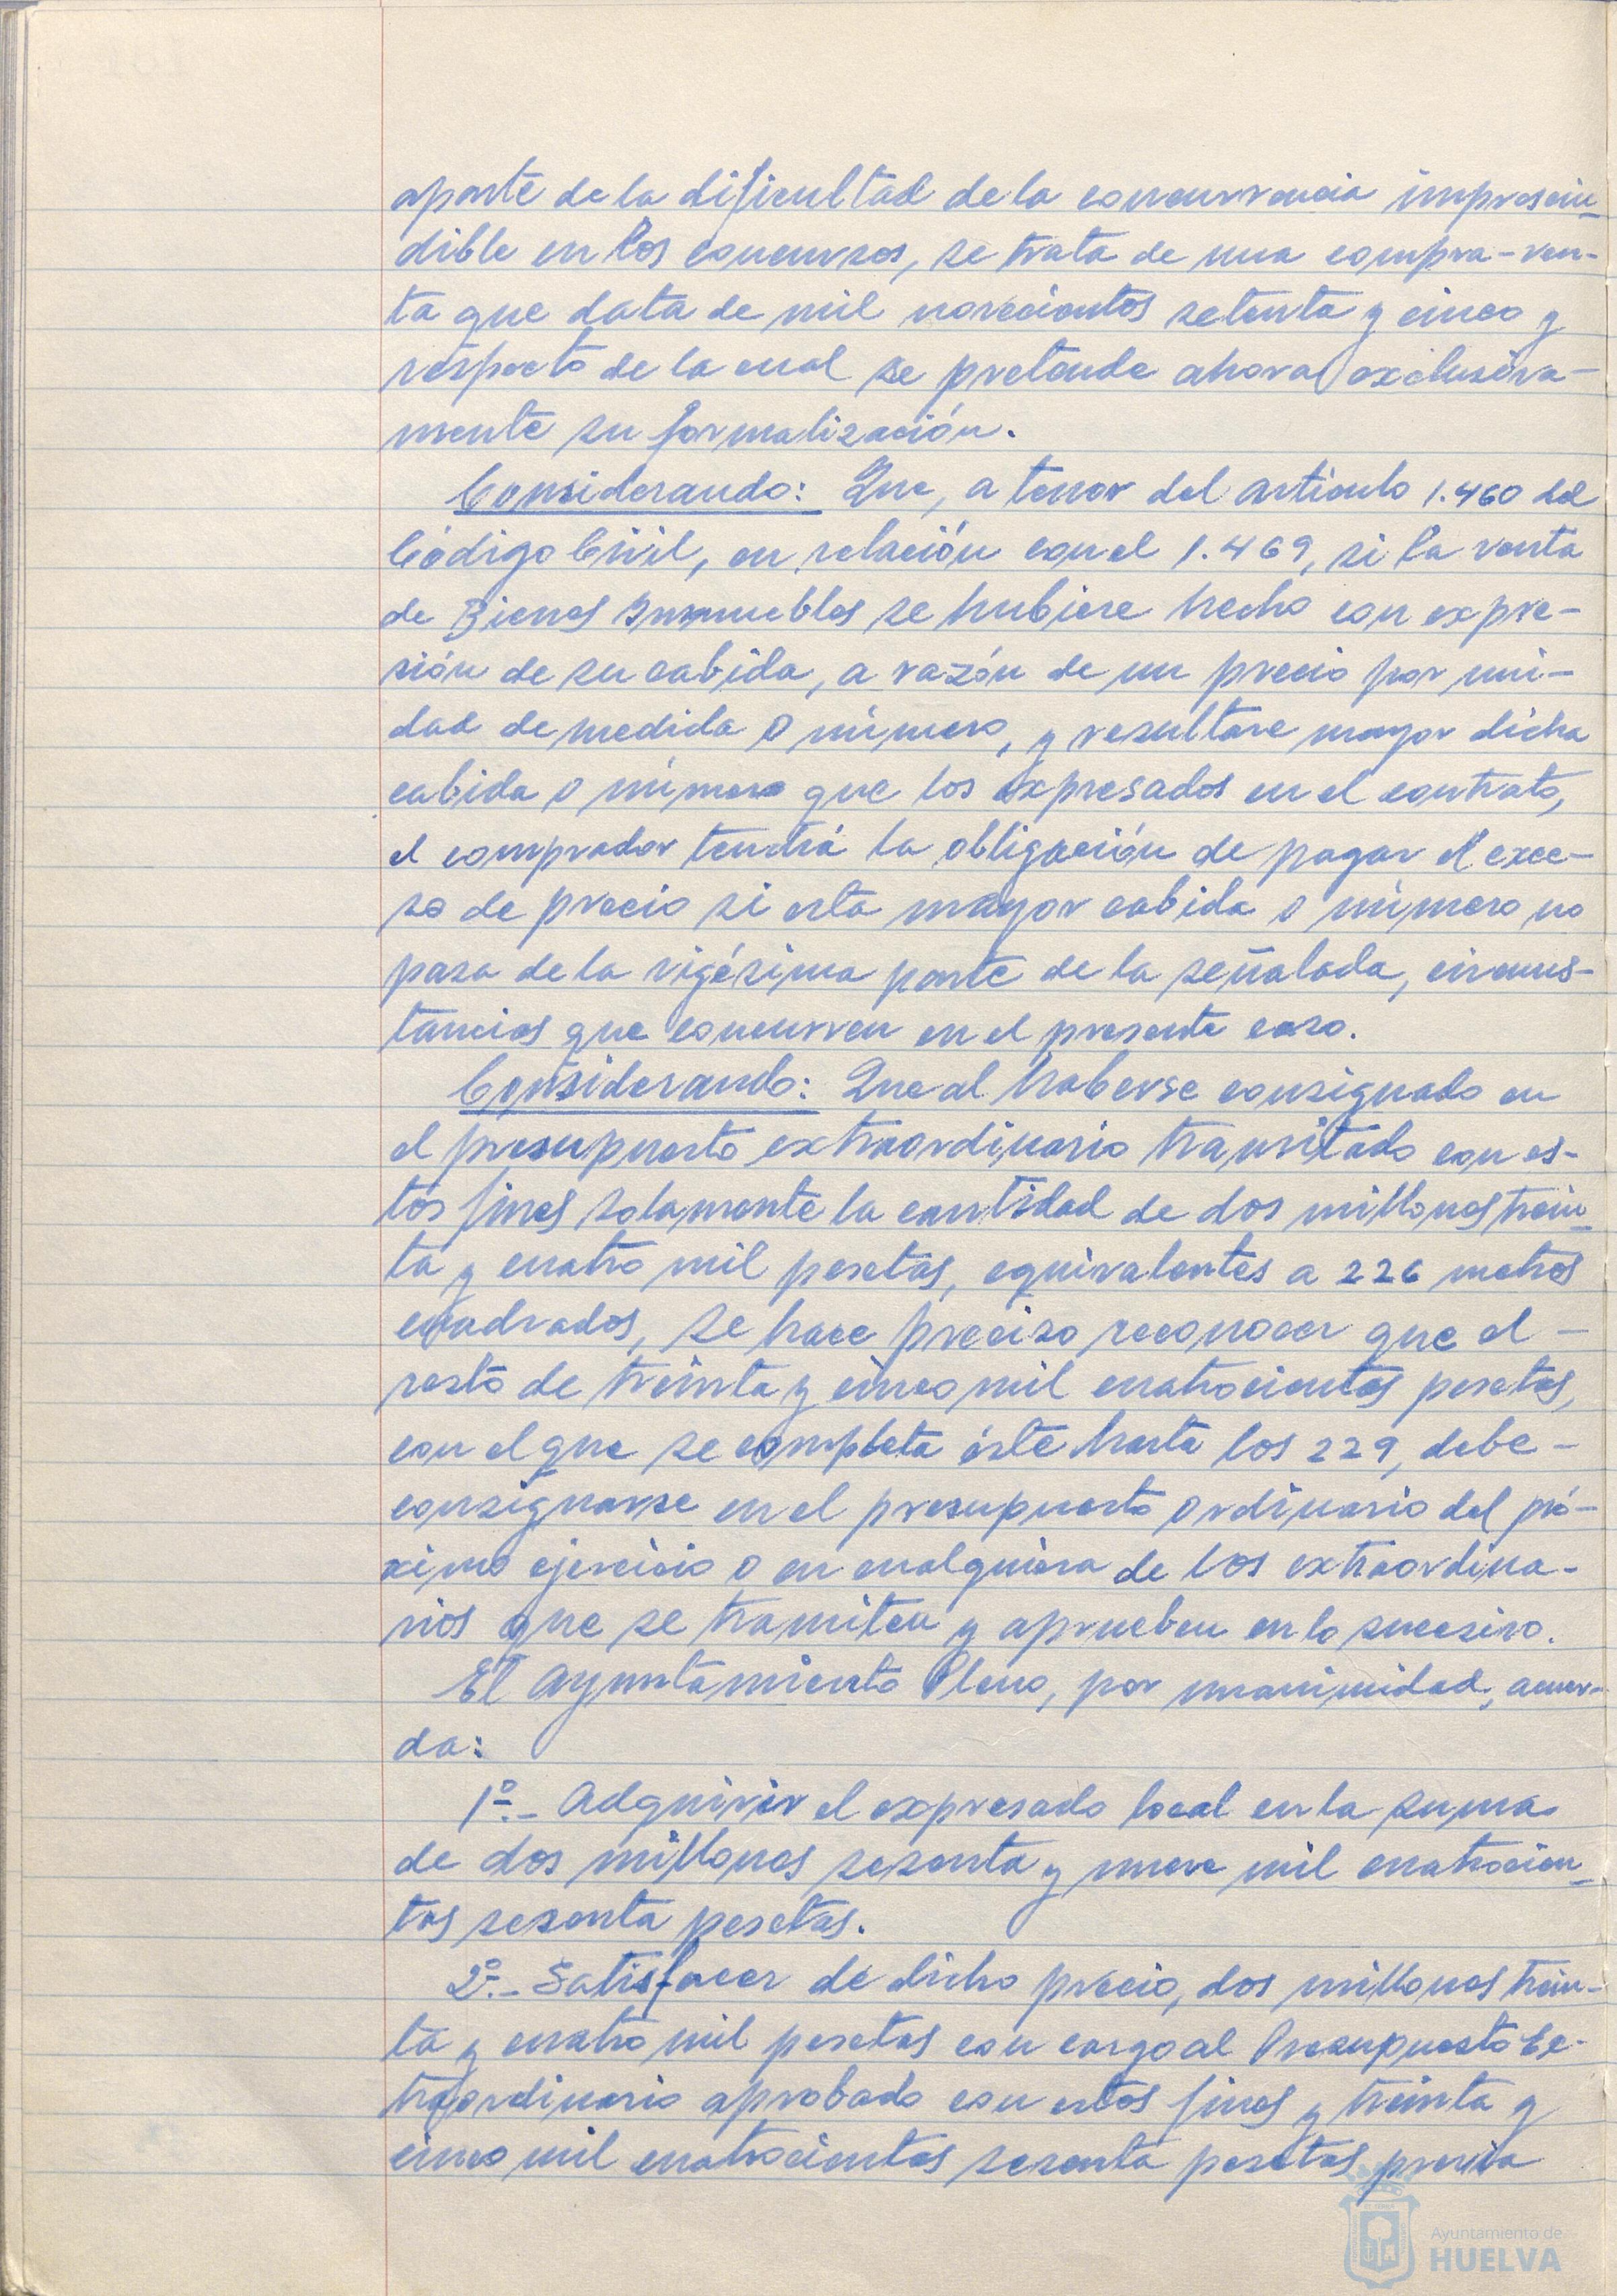 aparte de la dificultad de la concurrencia imprescin-
dible en los concursos, se trata de una compra-ven-
ta que data de mil novecientos setenta y cinco y
respecto de la cual se pretende ahora exclusiva-
mente su formalización.
Considerando: Que, a tenor del artículo 1.460 del
Código Civil, en relación con el 1.469, si la venta
de Bienes Inmuebles se hubiere hecho con expre-
sión de su cabida, a razón de un precio por uni-
dad de medida o número, y resultare mayor dicha
cabida o número que los expresados en el contrato,
el comprador tendrá la obligación de pagar el exce-
so de precio si esta mayor cabida o número no
pasa de la vigésima parte de la señalada, circuns-
tancias que concurren en el presente caso.
Considerando: Que al haberse consignado en
el presupuesto extraordinario tramitado con es-
tos fines solamente la cantidad de dos millones trein-
ta y cuatro mil pesetas, equivalentes a 226 metros
cuadrados, se hace preciso reconocer que el -
resto de treinta y cinco mil cuatrocientas pesetas,
con el que se completa éste hasta los 229, debe -
consignarse en el presupuesto ordinario del pró-
ximo ejercicio o en cualquiera de los extraordina-
rios que se tramiten y aprueben en lo sucesivo.
El Ayuntamiento Pleno, por unanimidad, acuer-
da:
1º.- Adquirir el expresado local en la suma
de dos millones sesenta y nueve mil cuatrocien-
tas sesenta pesetas.
2º.- Satisfacer de dicho precio, dos millones trein-
ta y cuatro mil pesetas con cargo al Presupuesto Ex-
traordinario aprobado con estos fines y treinta y
cinco mil cuatrocientas sesenta pesetas previa
Ayuntamiento de
HUELVA